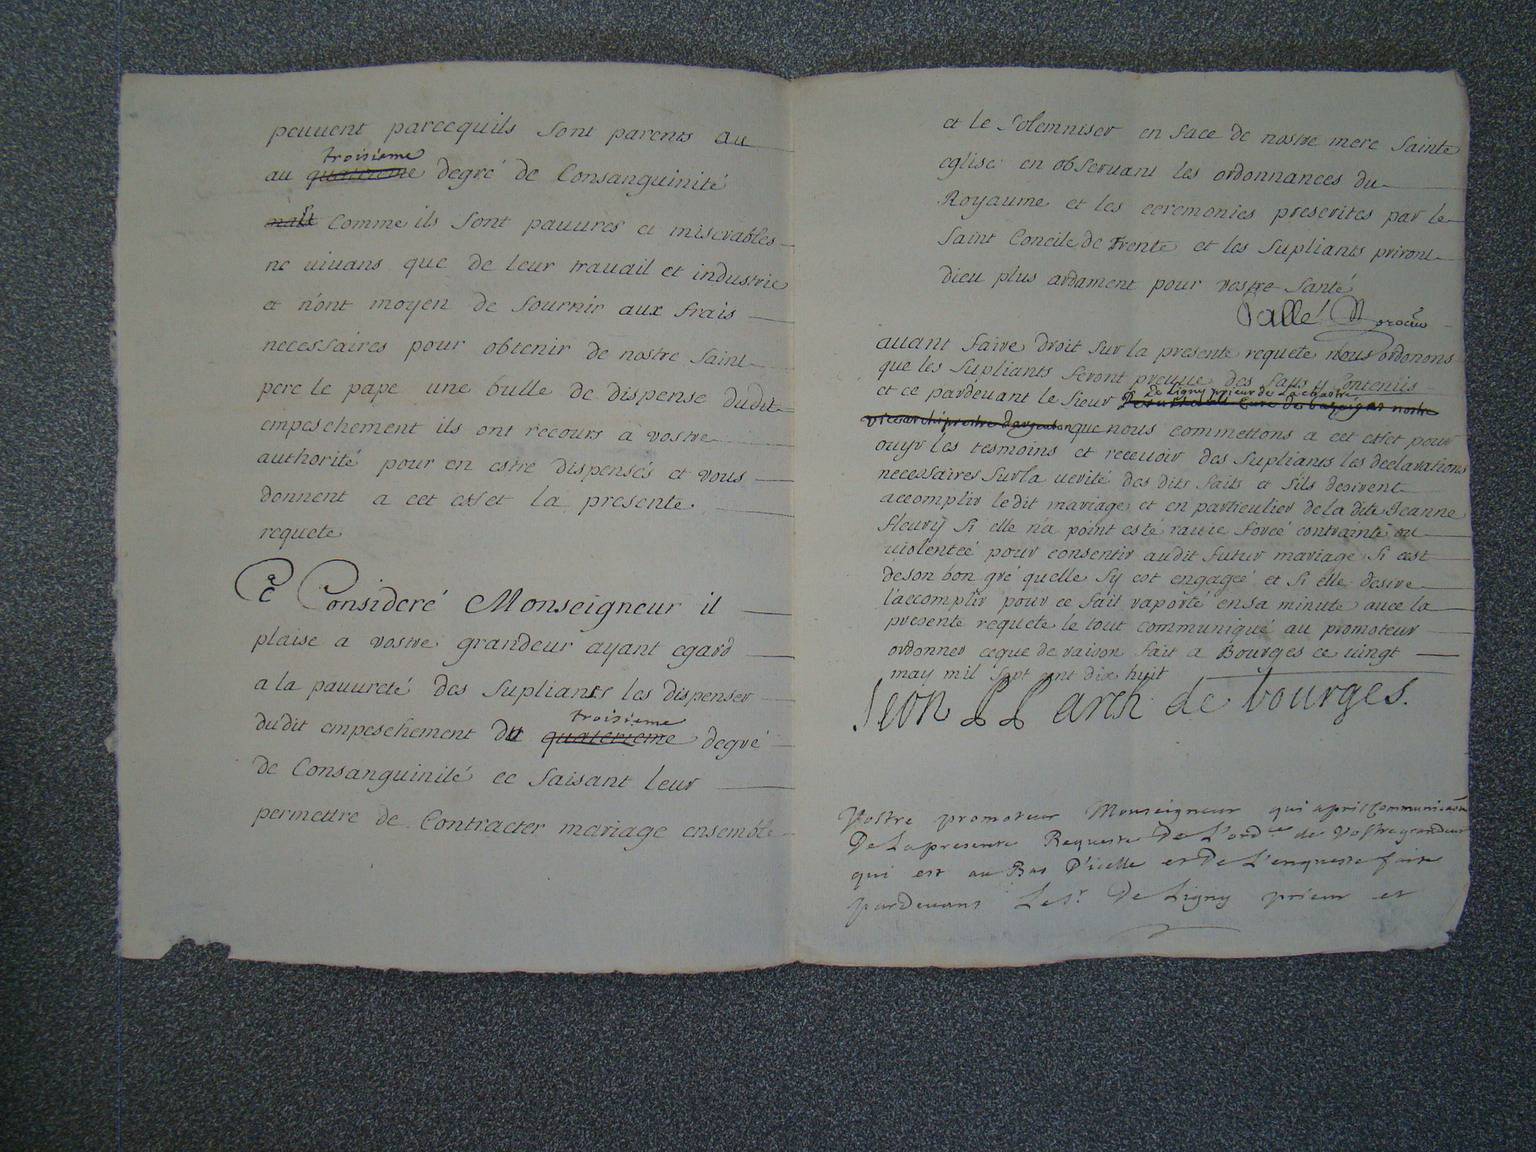 peuuent parcequils sont parents au
troisieme
au quatrieme degré de Consanguinité
mais comme ils sont pauures et miserables
ne uiuans que de leur trauail et industrie
et n'ont moyen de fournir aux frais
necessaires pour obtenir de nostre saint
pere le pape une bulle de dispense dudit
empeschement ils ont recours a vostre
authorité pour en estre dispensés et vous
donnent a cet effet la presente
requete
Ce Consideré Monseigneur il
plaise a vostre grandeur ayant egard
a la pauureté des supliants les dispenser
troisieme
dudit empeschement du quatrieme degré
de Consanguinité ce faisant leur
permettre de Contracter mariage ensemble
et le solemniser en face de nostre mere sainte
eglise en observant les ordonnances du
Royaume et les ceremonies prescrites par le
saint Concile de Trente et les supliants priront
dieu plus ardament pour vostre santé
auant faire droit sur la presente requete nous ordonons
que les supliants feront preuue des faits y contenus
de Ligny prieur de La chastre
et ce pardeuant le sieur
que nous commettons a cet effet pour
ouyr les tesmoins et receuoir des supliants les declarations
necessaires sur la uerité des dits faits et sils desirent
accomplir le dit mariage et en particulier de la dite Jeanne
fleury si elle n'a point esté rauie forcé contrainte ou
uiolenteé pour consentir audit futur mariage si cest
de son bon gré quelle sy est engageé et si elle desire
laccomplir pour ce fait raporté en sa minute auec la
presente requete le tout communiqué au promoteur
ordonner ceque de raison fait a Bourges ce uingt
may mil sept cent dix huit
Leon PP arch de bourges.
Vostre promoteur Monseigneur qui apres Communication
De La presente Requeste De L'ord.ce de Vostre grandeur
qui est au Bas D'icelle et De L'enqueste faite
pardeuant Le Sr. De Ligny prieur et